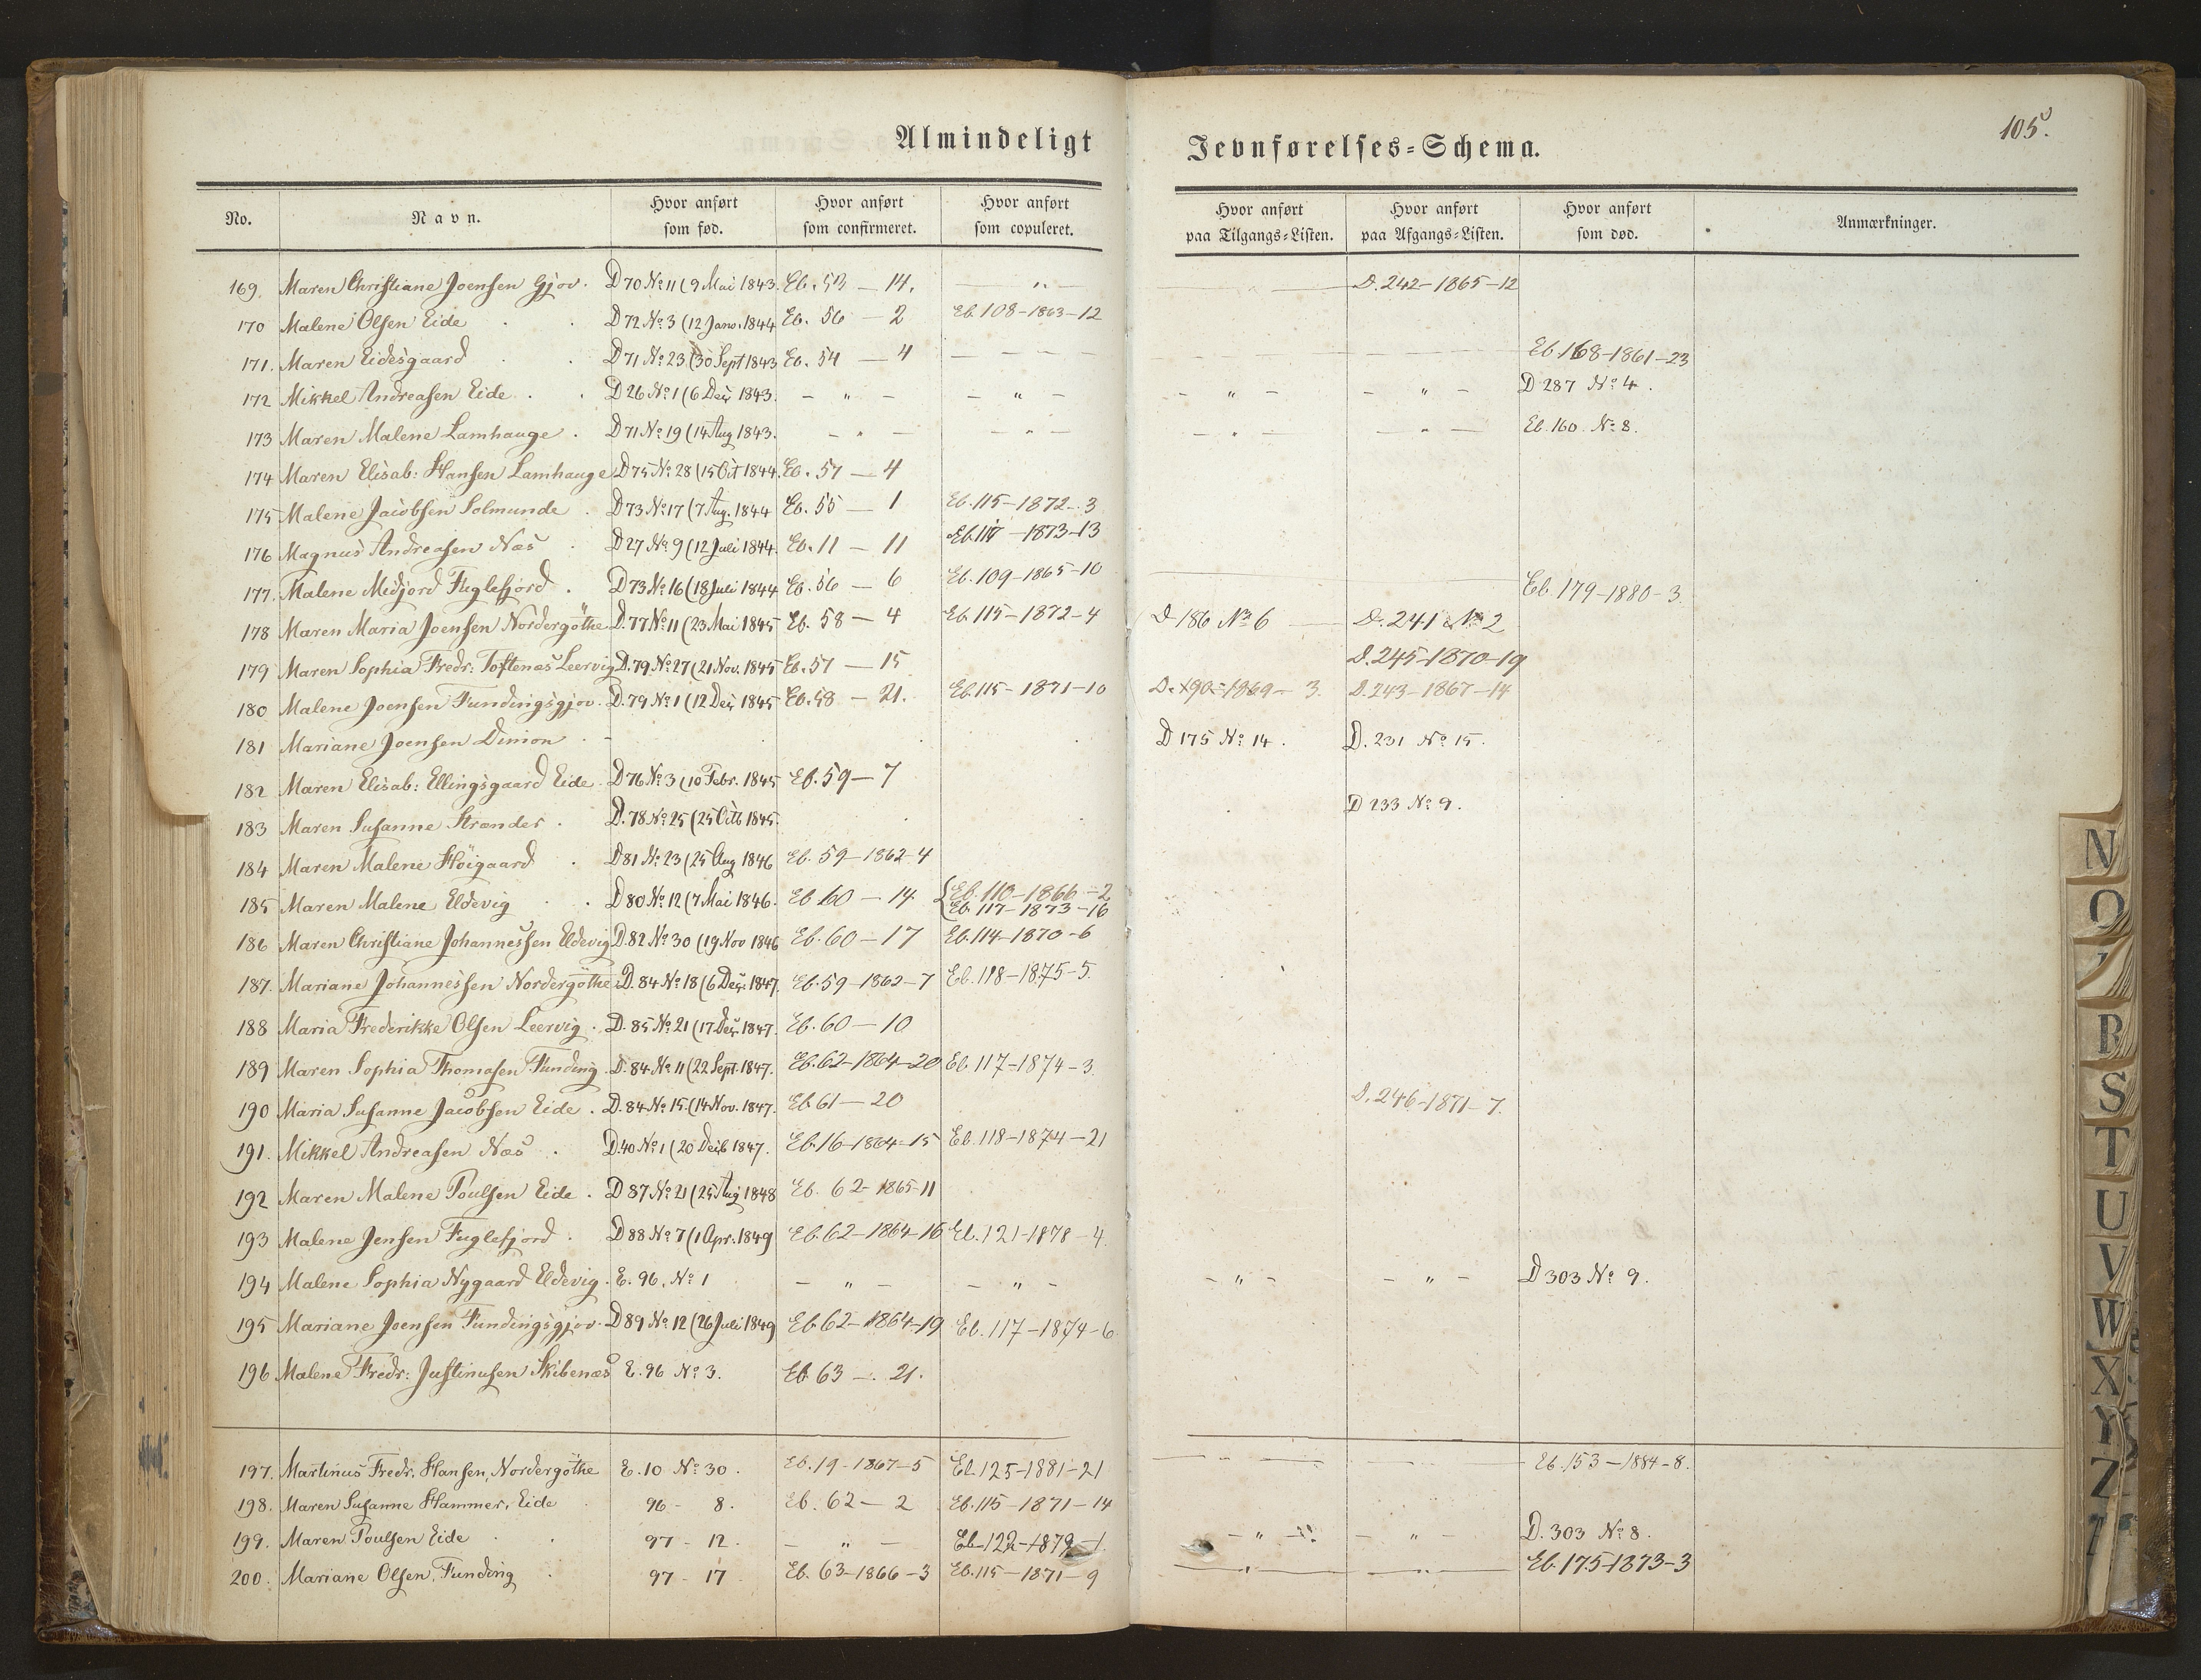 Almindeligt Jevnførelses=Schema. 105.
No. Navn. Hvor anført som fød. Hvor anført som confirmeret. Hvor anført som copuleret. Hvor anført paa Tilgangs=Listen. Hvor anført paa Afgangs=Listen. Hvor anført som død. Anmærkninger.
169. Maren Christiane Joensen Gjov. D 70 No 11 (9 Mai 1843. Eb. 53 — 14. — " — — D. 242-1865-12
170 Malene Olsen Eide . . D 72 No 3 (12 Janv. 1844 Eb. 56 — 2 Eb. 108-1863-12
171. Maren Eidesgaard . . D 71 No 23 (30 Sept 1843 Eb. 54 — 4 — — — Eb. 168-1861-23
172 Mikkel Andreasen Eide . . D 26 No 1 (6 Dec 1843. — " — — " — — " — — " — D 287 No 4.
173 Maren Malene Lamhauge . D 71 No 19 (14 Aug 1843. — " — — " — — " — — " — Eb. 160. No 8.
174 Maren Elisab: Hansen Lamhauge D 75 No 28 (15 Oct 1844. Eb. 57 — 4
175 Malene Jacobsen Solmunde . D 73 No 17 (7 Aug. 1844 Eb. 55 — 1 Eb. 115-1872-3
176 Magnus Andreasen Næs . D 27 No 9 (12 Juli 1844. Eb. 11 — 11 Eb. 117-1873-13
177. Malene Midjord Fuglefjord . D 73 No 16 (18 Juli 1844 Eb. 56 — 6 Eb. 109-1865-10 Eb. 179-1880-3.
178 Maren Maria Joensen Nordergöthe D. 77 No 11 (23 Mai 1845 Eb. 58 — 4 Eb. 115-1872-4 D 186 No 6 — D. 241 No 2
179 Maren Sophia Fredr: Toftenæs Leervig D. 79 No 27 (21 Nov. 1845 Eb. 57 — 15 D. 245-1870-19
180 Malene Joensen Fundingsgjov. D. 79 No 1 (12 Dec 1845 Eb. 58 — 21. Eb. 115-1871-10 D. 190-1869-3. D. 243-1867-14
181 Mariane Joensen Dimon . - D 175 No 14. D. 231 No 15.
182 Maren Elisab: Ellingsgaard Eide. D 76 No 3 (10 Febr. 1845 Eb. 59 — 7
183 Maren Susanne Strender . D. 78 No 25 (25 Octb 1845. D 233 No 9.
184 Maren Malene Höigaard . D 81 No 23 (25 Aug 1846 Eb. 59-1862-4
185 Maren Malene Eldevig . . D 80 No 12 (7 Mai 1846. Eb 60 — 14 { Eb. 110-1866-2
Eb. 117-1873-16
186 Maren Christiane Johannessen Eldevig D. 82 No 30 (19 Nov 1846 Eb. 60 — 17 Eb. 114-1870-6
187. Mariane Johannessen Nordergöthe D. 84 No 18 (6 Dec. 1847. Eb. 59-1862-7 Eb. 118-1875-5.
188 Maria Frederikke Olsen Leervig . D. 85 No 21 (17 Dec. 1847. Eb. 60 — 10
189 Maren Sophia Thomasen Funding. D. 84 No 11 (22 Sept. 1847. Eb. 62-1864-20 Eb. 117-1874-3.
190 Maria Susanne Jacobsen Eide . D. 84 No 15. (14 Nov. 1847. Eb 61 — 20 D. 246-1871-7.
191. Mikkel Andreasen Næs . D. 40 No 1 (20 Decb 1847. Eb. 16-1864-15 Eb. 118-1874-21
192 Maren Malene Poulsen Eide . D 87 No 21 (25 Aug 1848 Eb. 62-1865-11
193 Malene Jensen Fuglefjord . D 88 No 7 (1 Apr. 1849 Eb. 62-1864-16 Eb. 121-1878-4.
194 Malene Sophia Nygaard Eldevig. E. 96. No 1 — " — — " — — " — — " — D 303 No 9.
195 Mariane Joensen Fundingsgjov. D 89 No 12 (26 Juli 1849 Eb 62-1864-19 Eb. 117-1874-6
196 Malene Fredr: Justinusen Skibenæs E. 96 No 3. Eb 63 — 21.
197. Martinus Fredr. Hansen, Nordergöthe E. 10 No 30. Eb. 19-1867-5 Eb. 125-1881-21 Eb. 153-1884-8.
198. Maren Susanne Hammer, Eide 96 - 8. Eb. 62 — 2 Eb. 115-1871-14
199. Maren Poulsen Eide . . 97 - 12. — " — Eb. 122-1879-1. — " — — " — D. 303 No 8.
200. Mariane Olsen, Funding . 97 - 17 Eb. 63-1866-3 Eb. 115-1871-9 — " — — " — Eb. 175-1873-3
N
O
R
S
T
U
V
W
X
Y
Z